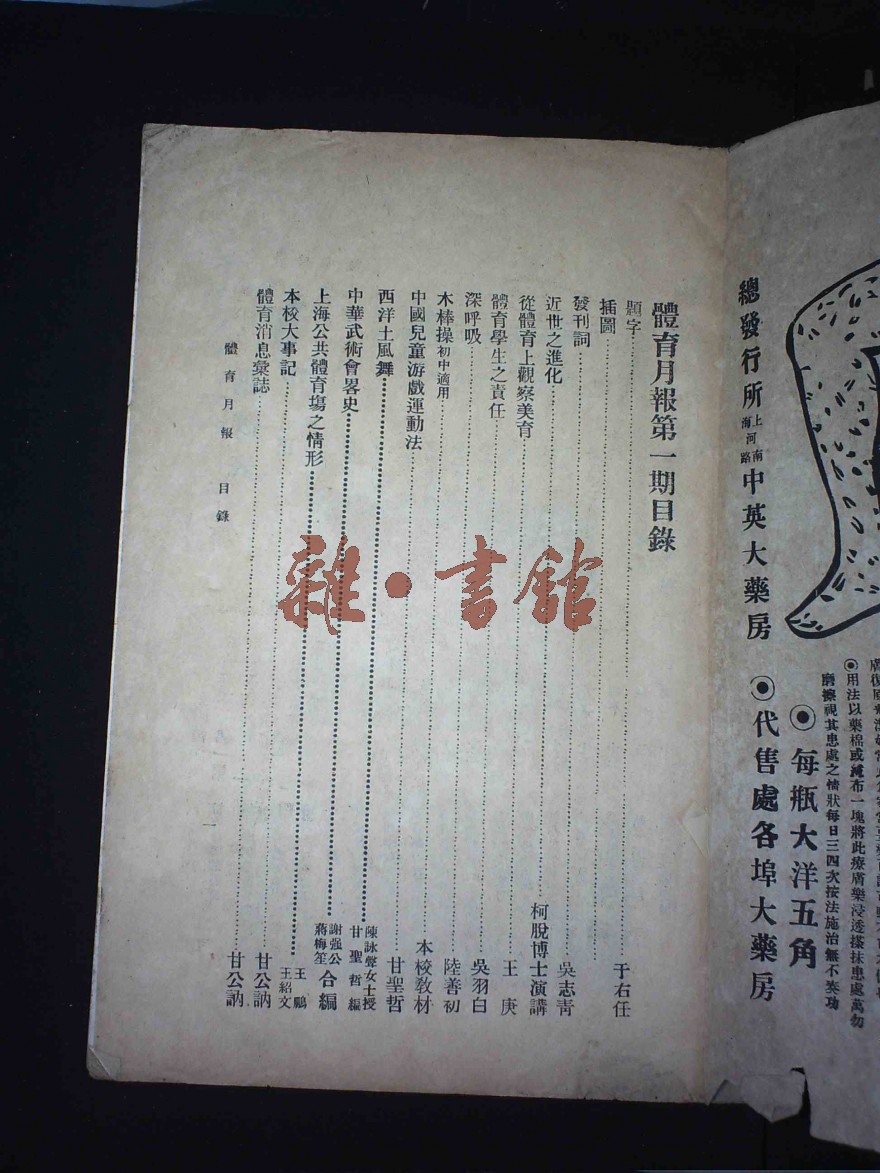 ◉用法以藥棉或絨布一塊將此療膚藥浸透搽抹患處萬勿
磨擦視其患處之情狀每日三四次按法施治無不奏功
◉每瓶大洋五角
總發行所上海河南路中英大藥房
◉代售處各埠大藥房
體育月報第一期目錄
題字……于右任
插圖……
發刊詞……吳志青
近世之進化……柯脫博士演講
從體育上觀察美育……王庚
體育學生之責任……吳羽白
深呼吸……陸善初
木棒操初中適用……本校教材
中國兒童游戲運動法……甘聖哲
西洋土風舞……陳詠聲女士授 甘聖哲編
中華武術會畧史……謝强公 蔣梅笙 合編
上海公共體育塲之情形……王鵬 王紹文
本校大事記……甘公訥
體育消息彙誌……甘公訥
體育月報 目錄
一
雜·書館